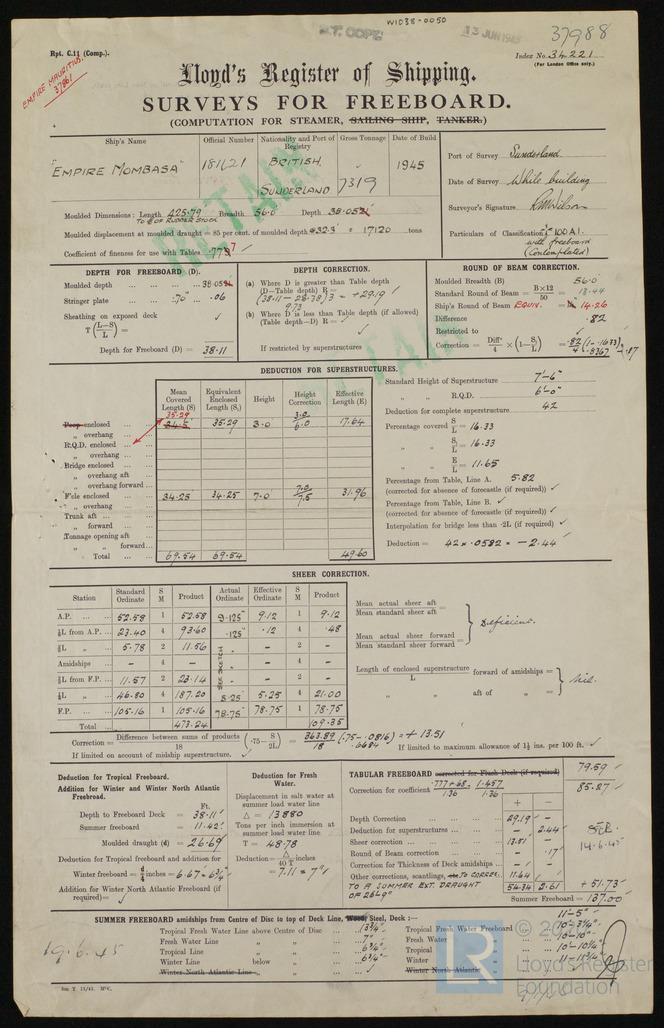 W1038-0050
13 JUN 1945
37988
Rpt. C.11 (Comp.).
Index No. 34221
(For London Office only.)
EMPIRE MAURITIUS.
37861
Lloyd's Register of Shipping.
SURVEYS FOR FREEBOARD.
(COMPUTATION FOR STEAMER, SAILING SHIP, TANKER.)
Ship's Name
Official Number
Nationality and Port of Registry
Gross Tonnage
Date of Build
"EMPIRE MOMBASA"
181621
BRITISH
SUNDERLAND
7319
1945
Port of Survey Sunderland
Date of Survey While building
Surveyor's Signature
Particulars of Classification 100A1.
with freeboard
(Contemplated)
RETAIN
Moulded Dimensions: Length 425.79 Breadth 56.0 Depth 38.05
TO ₵ OF RUDDER STOCK
Moulded displacement at moulded draught = 85 per cent. of moulded depth = 32.3' = 17120 tons
Coefficient of fineness for use with Tables .777
DEPTH FOR FREEBOARD (D).
Moulded depth ... 38.05
Stringer plate ... .70" .06
Sheathing on exposed deck ✓
T (L-S/L) =
Depth for Freeboard (D) = 38.11
DEPTH CORRECTION.
(a) Where D is greater than Table depth
(D-Table depth) R =
(38.11 - 28.38) 3 = +29.19 ✓
9.73
(b) Where D is less than Table depth (if allowed)
(Table depth-D) R =
If restricted by superstructures
ROUND OF BEAM CORRECTION.
Moulded Breadth (B) 56.0
Standard Round of Beam = B×12/50 = 13.44
Ship's Round of Beam EQUIV. = 14.26
Difference .82
Restricted to ✓
Correction = Diff/4 × (1-S₁/L) = .82/4 (1-.1633) = .17
.8367
RETAIN
DEDUCTION FOR SUPERSTRUCTURES.
Mean Covered Length (S)
Equivalent Enclosed Length (S₁)
Height
Height Correction
Effective Length (E)
Poop enclosed ... 35.29 34.5 35.29 3.0 3.0/6.0 17.64
„ overhang ...
R.Q.D. enclosed ...
„ overhang ...
Bridge enclosed ...
„ overhang aft
„ overhang forward...
F'cle enclosed ... 34.25 34.25 7.0 7.0/7.5 31.96
„ overhang ...
Trunk aft ...
„ forward ...
Tonnage opening aft
„ „ forward...
Total ... 69.54 69.54 49.60
Standard Height of Superstructure 7'-6"
„ „ R.Q.D. 6'-0"
Deduction for complete superstructure 42
Percentage covered S/L = 16.33
„ „ S₁/L = 16.33
„ „ E/L = 11.65
Percentage from Table, Line A. 5.82
(corrected for absence of forecastle (if required)) ✓
Percentage from Table, Line B. ✓
(corrected for absence of forecastle (if required)) ✓
Interpolation for bridge less than ·2L (if required) ✓
Deduction = 42 × .0582 = -2.44 ✓
SHEER CORRECTION.
Station
Standard Ordinate
S M
Product
Actual Ordinate
Effective Ordinate
S M
Product
A.P. ... 52.58 1 52.58 9.125 9.12 1 9.12
⅙L from A.P. ... 23.40 4 93.60 .125 .12 4 .48
⅓L „ ... 5.78 2 11.56 - 2 -
Amidships ... - 4 - - 4 -
⅓L from F.P. ... 11.57 2 23.14 - 2 -
⅙L „ ... 46.80 4 187.20 5.25 5.25 4 21.00
F.P. ... 105.16 1 105.16 78.75 78.75 1 78.75
Total ... 473.24 109.35
SEE SKETCH
Mean actual sheer aft =
Mean standard sheer aft
Mean actual sheer forward =
Mean standard sheer forward
Deficient.
Length of enclosed superstructure / L forward of amidships =
„ „ aft of „ =
Nil.
Correction = Difference between sums of products / 18 (·75- S/2L) = 363.89/18 (.75-.0816) = + 13.51
.6684
If limited on account of midship superstructure. ✓
If limited to maximum allowance of 1½ ins. per 100 ft. ✓
Deduction for Tropical Freeboard.
Addition for Winter and Winter North Atlantic Freeboard.
Ft.
Depth to Freeboard Deck = 38.11
Summer freeboard = 11.42
Moulded draught (d) = 26.69
Deduction for Tropical freeboard and addition for
Winter freeboard = d/4 inches = 6.67 = 6¾"
Addition for Winter North Atlantic Freeboard (if required) = ✓
Deduction for Fresh Water.
Displacement in salt water at summer load water line
Δ = 13880
Tons per inch immersion at summer load water line
T = 48.78
Deduction = Δ/40T inches
= 7.11 = 7"
TABULAR FREEBOARD corrected for Flush Deck (if required) 79.59 ✓
Correction for coefficient .777+.68 / 1.36 = 1.457 / 1.36 85.27
+ -
Depth Correction ... 29.19 -
Deduction for superstructures ... - 2.44
Sheer correction ... 13.51 -
Round of Beam correction ... - .17
Correction for Thickness of Deck amidships ... - -
Other corrections, scantlings, etc. TO CORRES. 11.64
TO A SUMMER EXT. DRAUGHT
OF 26'-9"
54.34 2.61 + 51.73
Summer Freeboard = 137.00
14.6.45
SUMMER FREEBOARD amidships from Centre of Disc to top of Deck Line, Wood, Steel, Deck:— 11'-5"
Tropical Fresh Water Line above Centre of Disc ... 13¾"
Fresh Water Line „ „ ... 7"
Tropical Line „ „ ... 6¾"
Winter Line below „ ... 6¾"
Winter North Atlantic Line „ „ ... ✓
Tropical Fresh Water Freeboard ... 10'-3¼"
Fresh Water „ ... 10'-10"
Tropical „ ... 10'-10¼"
Winter „ ... 11'-11¾"
Winter North Atlantic „ ...
19.6.45
LR
Lloyd's Register
Foundation